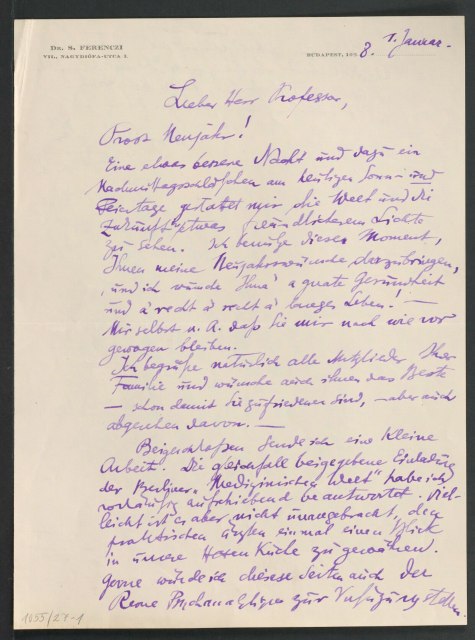 DR. S. FERENCZI
VII., NAGYDIÓFA-UTCA 3.
BUDAPEST, 192 8. 1. Januar.
Lieber Herr Professor,
Prosit Neujahr!
Eine etwas bessere Nacht und dazu ein
Nachmittagsschläfchen am heutigen Sonn- und
Feiertage gestatet mir die Welt und die
Zukunft etwas freundlicherem Lichte
zu sehen. Ich benütze diesen Moment,
Ihnen meine Neujahrswünsche darzubringen,
und ich wünsche Ihna' a guate Gesundheit
und a' recht a' recht a' langes Leben! —
Mir selbst u. A. daß Sie mir nach wie vor
gewogen bleiben.
Ich begrüße natürlich alle Mitglieder Ihrer
Familie und wünsche auch ihnen das Beste
— schon damit Sie zufriedener sind, — aber auch
abgesehen davon. —
Beigeschlossen sende ich eine kleine
Arbeit. Die gleichfalls beigegebene Einladung
der Berliner „Medizinischen Welt" habe ich
vorläufig aufschiebend beantwortet. Viel-
leicht ist es aber nicht unangebracht, den
praktischen Ärzten einmal einen Blick
in unsere Hexenküche zu gewähren.
Gerne würde ich diese Seiten auch der
Psychoanalytique zur Verfügung stellen.
1055/27-1